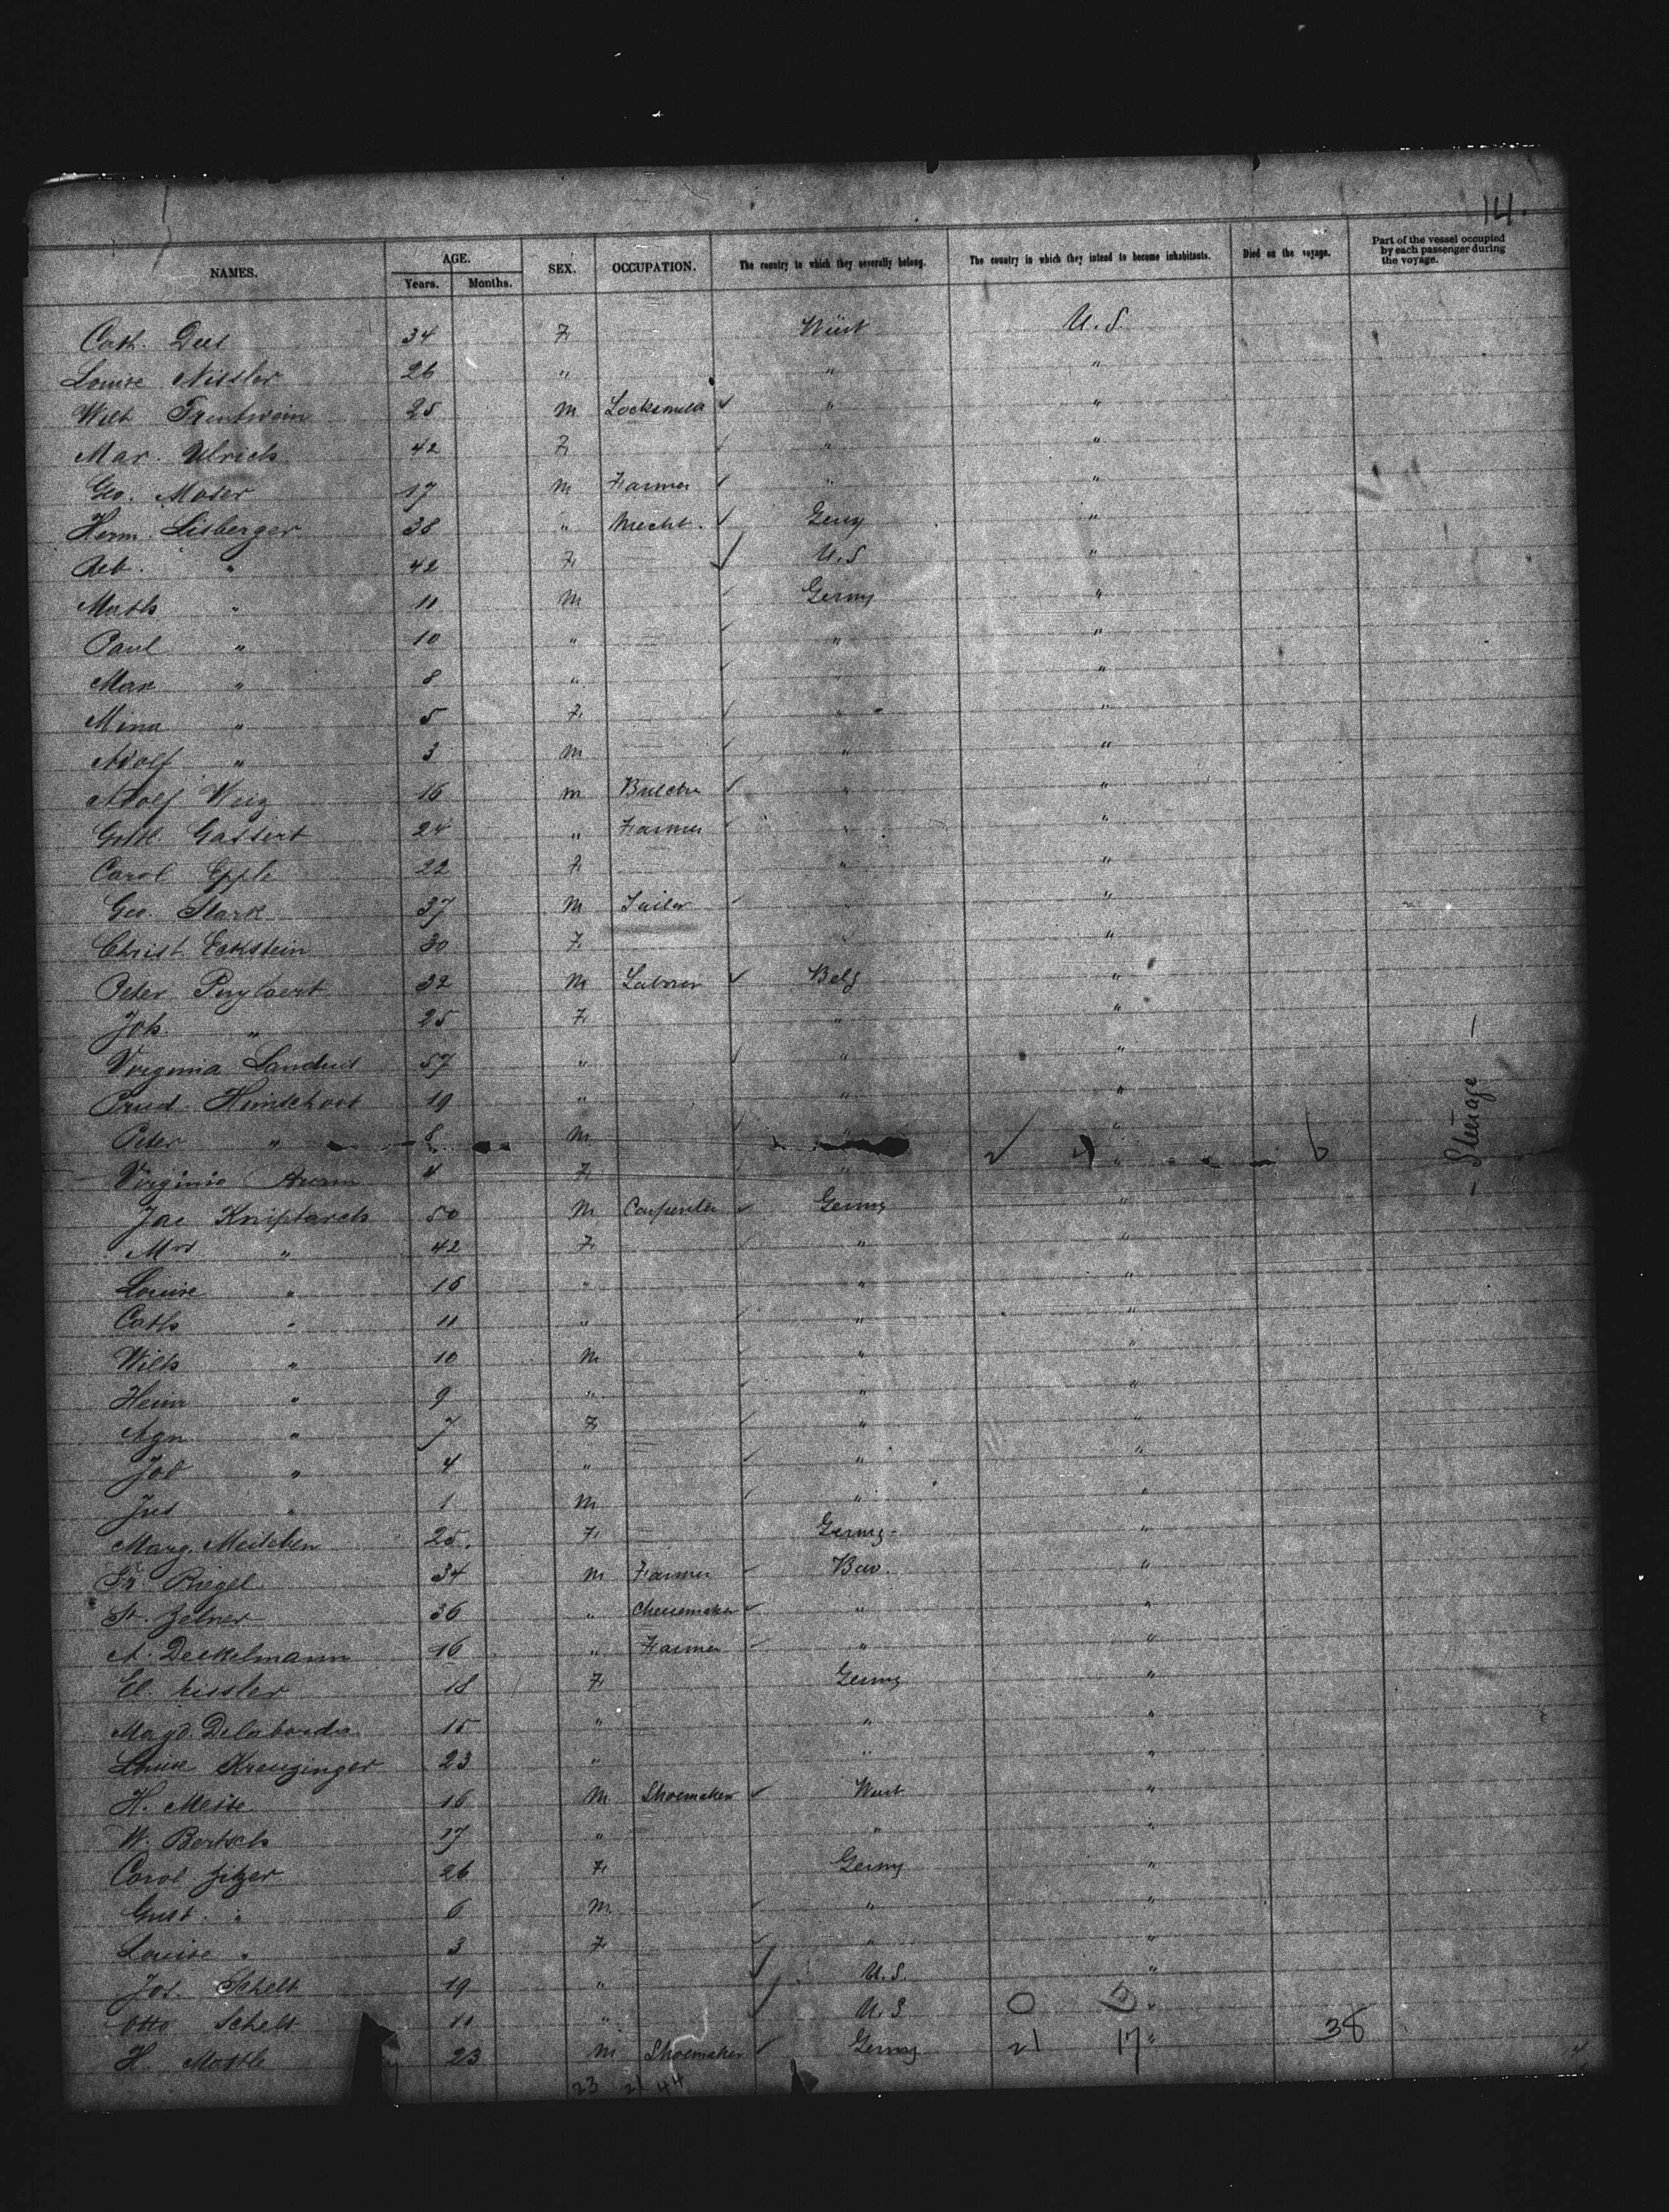 14.
NAMES. AGE. Years. Months. SEX. OCCUPATION. The country to which they severally belong. The country in which they intend to become inhabitants. Died on the voyage. Part of the vessel occupied by each passenger during the voyage.
Cath. 34 F Würt U.S.
Louise Nissler 26 " " "
Wilh 25 M Locksmith " "
Mar. Ulrich 42 F " "
Geo. Moser 17 M Farmer " "
Herm. Lisberger 38 " Mecht. Germy "
Reb. " 42 F U.S "
Math " 11 M Germy "
Paul " 10 " " "
Max " 8 " " "
Mina " 5 F " "
Adolf " 3 M " "
Adolf Weig 16 m Butcher " "
Gottl. Gassert 24 " Farmer " "
Carol Epple 22 F " "
Geo. Stark 37 M Tailor " "
Christ. Eckstein 30 F " "
Peter 32 M Laborer Belg "
Joh. " 25 F " "
Virginia 57 " " "
Prud. 19 " " "
Peter " 8 M " "
Virginie 4 F " "
Jac 50 M Carpenter Germy "
Mrs " 42 F " "
Louise " 16 " " "
Cath " 11 " " "
Wilh " 10 M " "
Heinr " 9 " " "
Agn " 7 F " "
Jos " 4 " " "
" 1 M " "
Marg. 25. F Germy "
Fr. Riegel 34 M Farmer Bav. "
St. Zelner 36 " Cheesemaker " "
A. Deckelmann 16 " Farmer " "
El. 18 F Germy "
Magd. 15 " " "
Louise Kreuzinger 23 " " "
H. 16 M Shoemaker Wurt "
W. Bertsch 17 " " "
Carol Zitzer 26 F Germy "
Gust. " 6 M " "
Louise " 3 F " "
Jos. Schelt 19 " U.S. "
Otto Schelt 11 " U.S "
H. 23 M Shoemaker Germy 21 17 " 38
23 21 44
- Steerage -